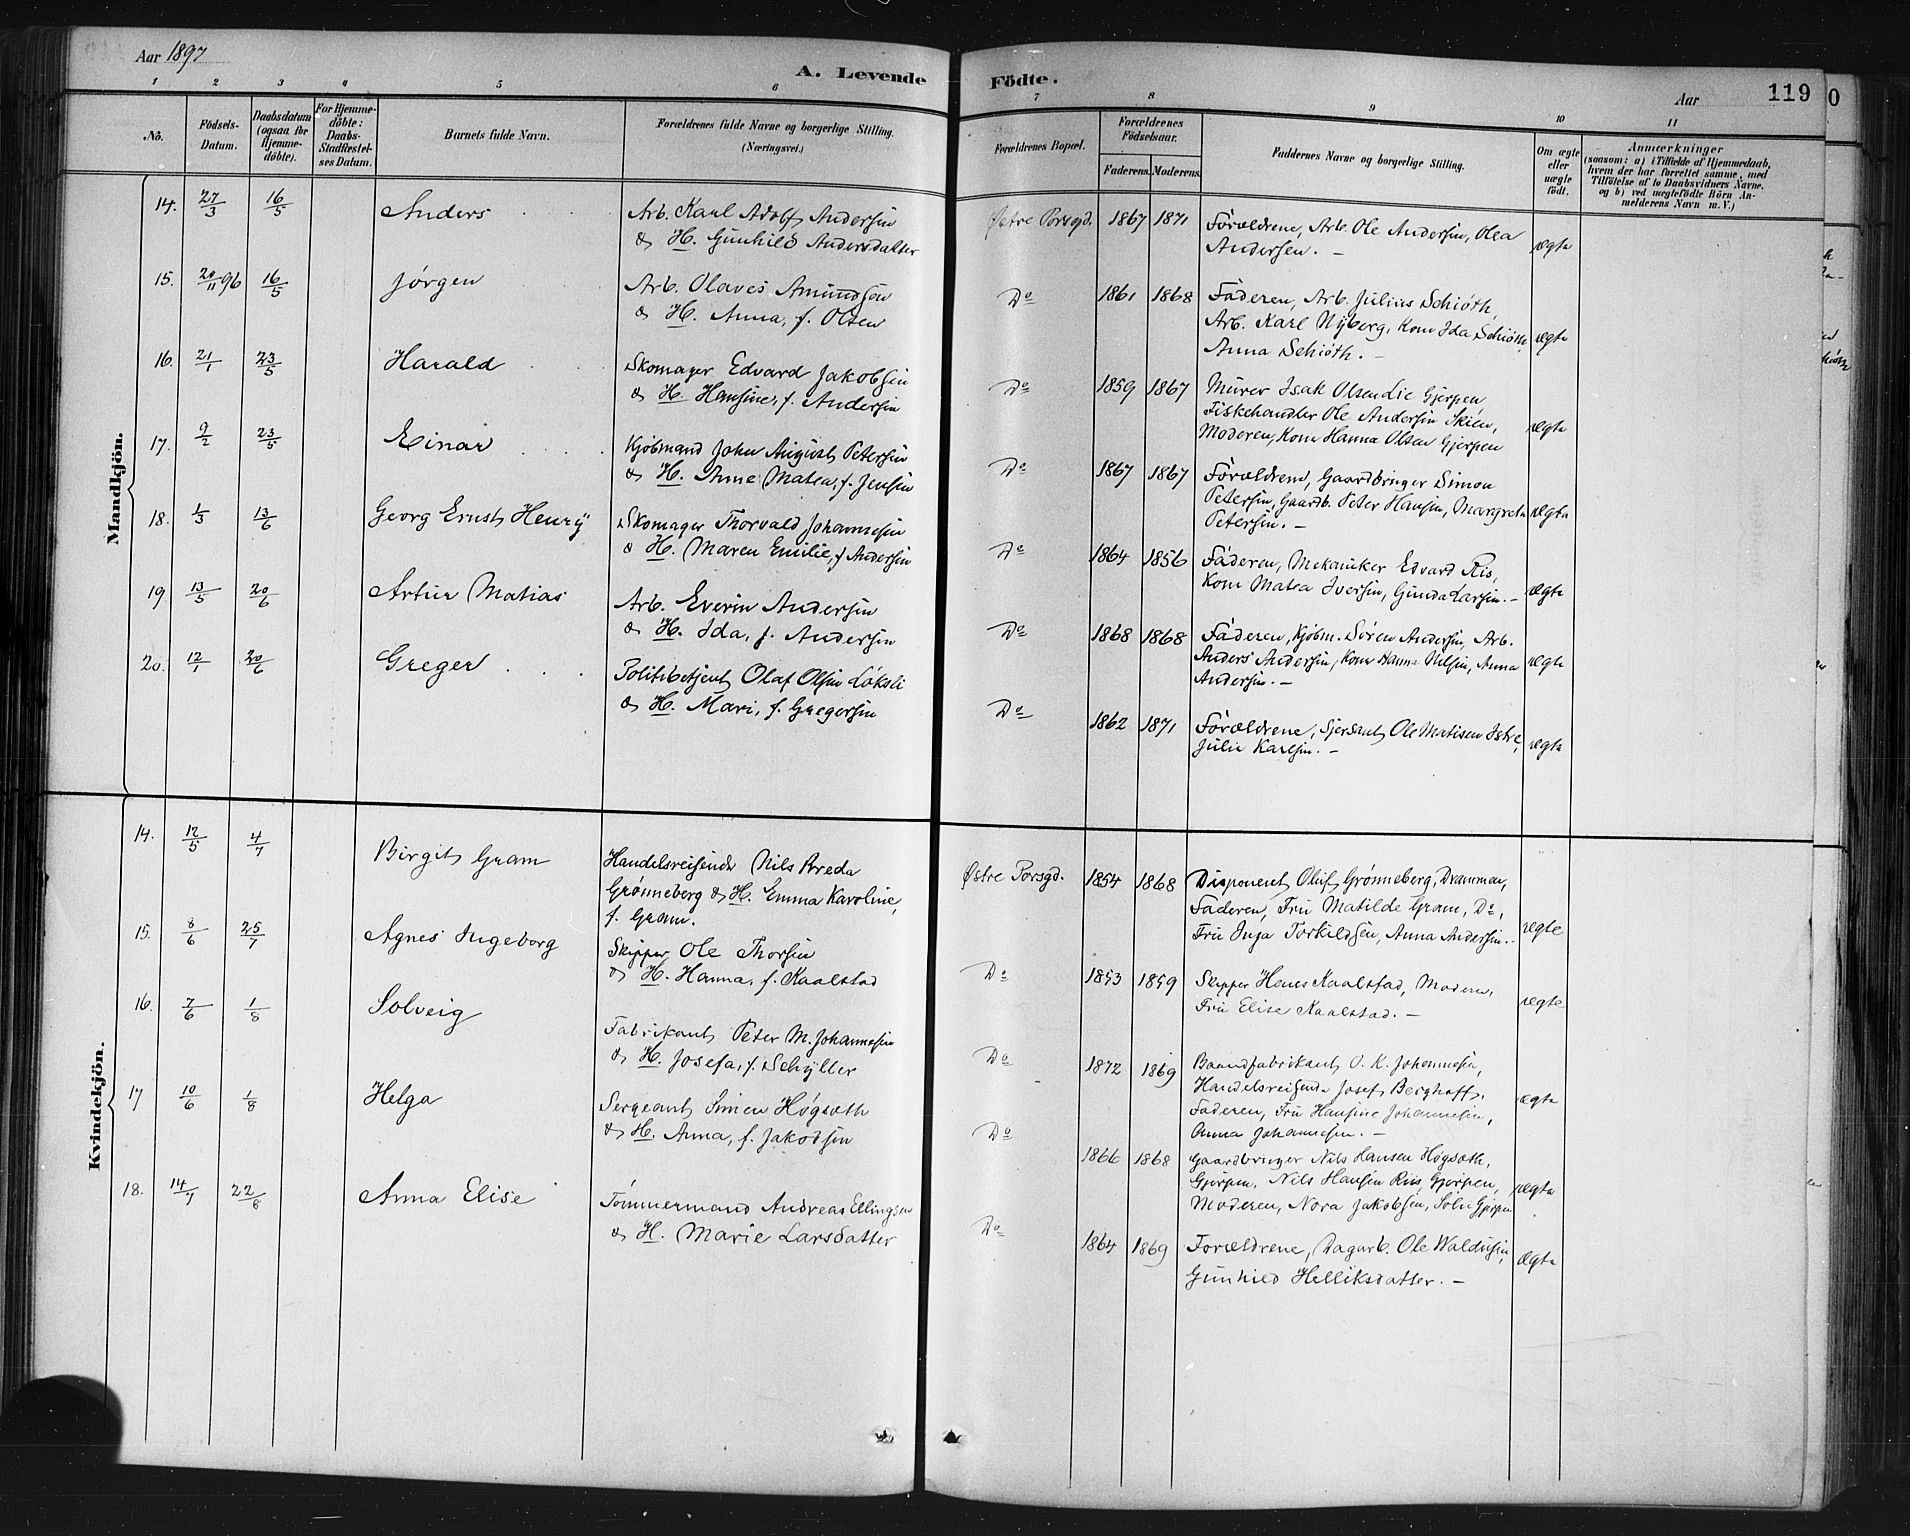 Aar 1897
A. Levende
Födte.
Aar
119
0
1 2 3 4 5 6 7 8 9 10 11
No.
Födsels-
Datum.
Daabsdatum
(ogsaa for
Hjemme-
döbte).
For Hjemme-
döbte:
Daabs-
Stadfæstel-
ses Datum.
Barnets fulde Navn.
Forældrenes fulde Navne og borgerlige Stilling.
(Næringsvei.)
Forældrenes Bopæl.
Forældrenes
Födselsaar.
Faderens. Moderens.
Faddernes Navne og borgerlige Stilling.
Om ægte
eller
uægte
födt.
Anmærkninger
(saasom: a) i Tilfælde af Hjemmedaab,
hvem der har forrettet samme, med
Tilföielse af to Daabsvidners Navne.
og b) ved uægtefödte Börn An-
melderens Navn m.V.)
Mandkjön.
14. 27/3 16/5 Anders
Arb. Karl Adolf Andersen
& H. Gunhild Andersdatter
Østre Porsgd. 1867 1871
Forældrene, Arb. Ole Andersen, Olea
Andersen. —
ægte
15. 20/11 96 16/5 Jørgen
Arb. Olaves Amundsen
& H. Anna, f. Olsen
Do 1861 1868
Faderen, Arb. Julius Schiöth,
Arb. Karl Nyberg, Kone Ida Schiöth,
Anna Schiöth. —
ægte
16. 21/1 23/5 Harald
Skomager Edvard Jakobsen
& H. Hansine, f. Andersen
Do 1859 1867
Murer Isak Olsen Lie Gjerpen
Fiskehandler Ole Andersen Skien,
Moderen, Kone Hanna Olsen Gjerpen
ægte
17. 9/2 23/5 Einar
Kjöbmand John August Petersen
& H. Anne Matea, f. Jensen
Do 1867 1867
Forældrene, Gaardbruger Simon
Petersen, Gaardb. Peter Hansen, Margrete
Petersen. —
ægte
18. 1/3 13/6 Georg Ernst Henry
Skomager Thorvald Johannesen
& H. Maren Emilie, f. Andersen
Do 1864 1856
Faderen, Mekaniker Edvard Ris,
Kone Matea Iversen, Gunda Larsen. —
ægte
19. 13/5 20/6 Artur Matias
Arb. Everin Andersen
& H. Ida, f. Andersen
Do 1868 1868
Faderen, Kjöbm. Sören Andersen, Arb.
Anders Andersen, Kone Hanna Nilsen, Anna
Andersen. —
ægte
20. 12/1 20/6 Greger
Politibetjent Olaf Olsen Löksli
& H. Mari, f. Gregersen
Do 1862 1871
Forældrene, Sjersant Ole Matisen
Julie Karlsen. —
ægte
Kvindekjön.
14. 12/5 4/7 Birgit Gram
Handelsreisende Nils Breda
Grönneberg & H. Emma Karoline,
f. Gram.
Østre Porsgd. 1854 1868
Disponent Oluf Grönneberg, Drammen,
Faderen, Fru Matilde Gram, Do,
Fru Inga Torkildsen, Anna Andersen. —
ægte
15. 8/6 25/7 Agnes Ingeborg
Skipper Ole Thorsen
& H. Hanna, f. Kaalstad
Do 1853 1859
Skipper Hans Kaalstad, Moderen,
Fru Elise Kaalstad. —
ægte
16. 7/6 1/8 Solveig
Fabrikant Peter M. Johannesen
& H. Josefa, f. Schyller
Do 1872 1869
Baandfabrikant O. K. Johannesen,
Handelsreisende Josef Berghoff,
Faderen, Fru Hansine Johannesen,
Anna Johannesen. —
ægte
17 10/6 1/8 Helga
Sergeant Simen Høgsøth
& H. Anna, f. Jakobsen
Do 1866 1868
Gaardbruger Nils Hansen Høgsøth,
Gjerpen, Nils Hansen Riis, Gjerpen,
Moderen, Nora Jakobsen, Gjerpen
ægte
18. 14/7 22/8 Anna Elise
Tömmermand Andreas Ellingsen
& H. Marie Larsdatter
Do 1864 1869
Forældrene, Dagarb. Ole
Gunhild Helliksdatter. —
ægte